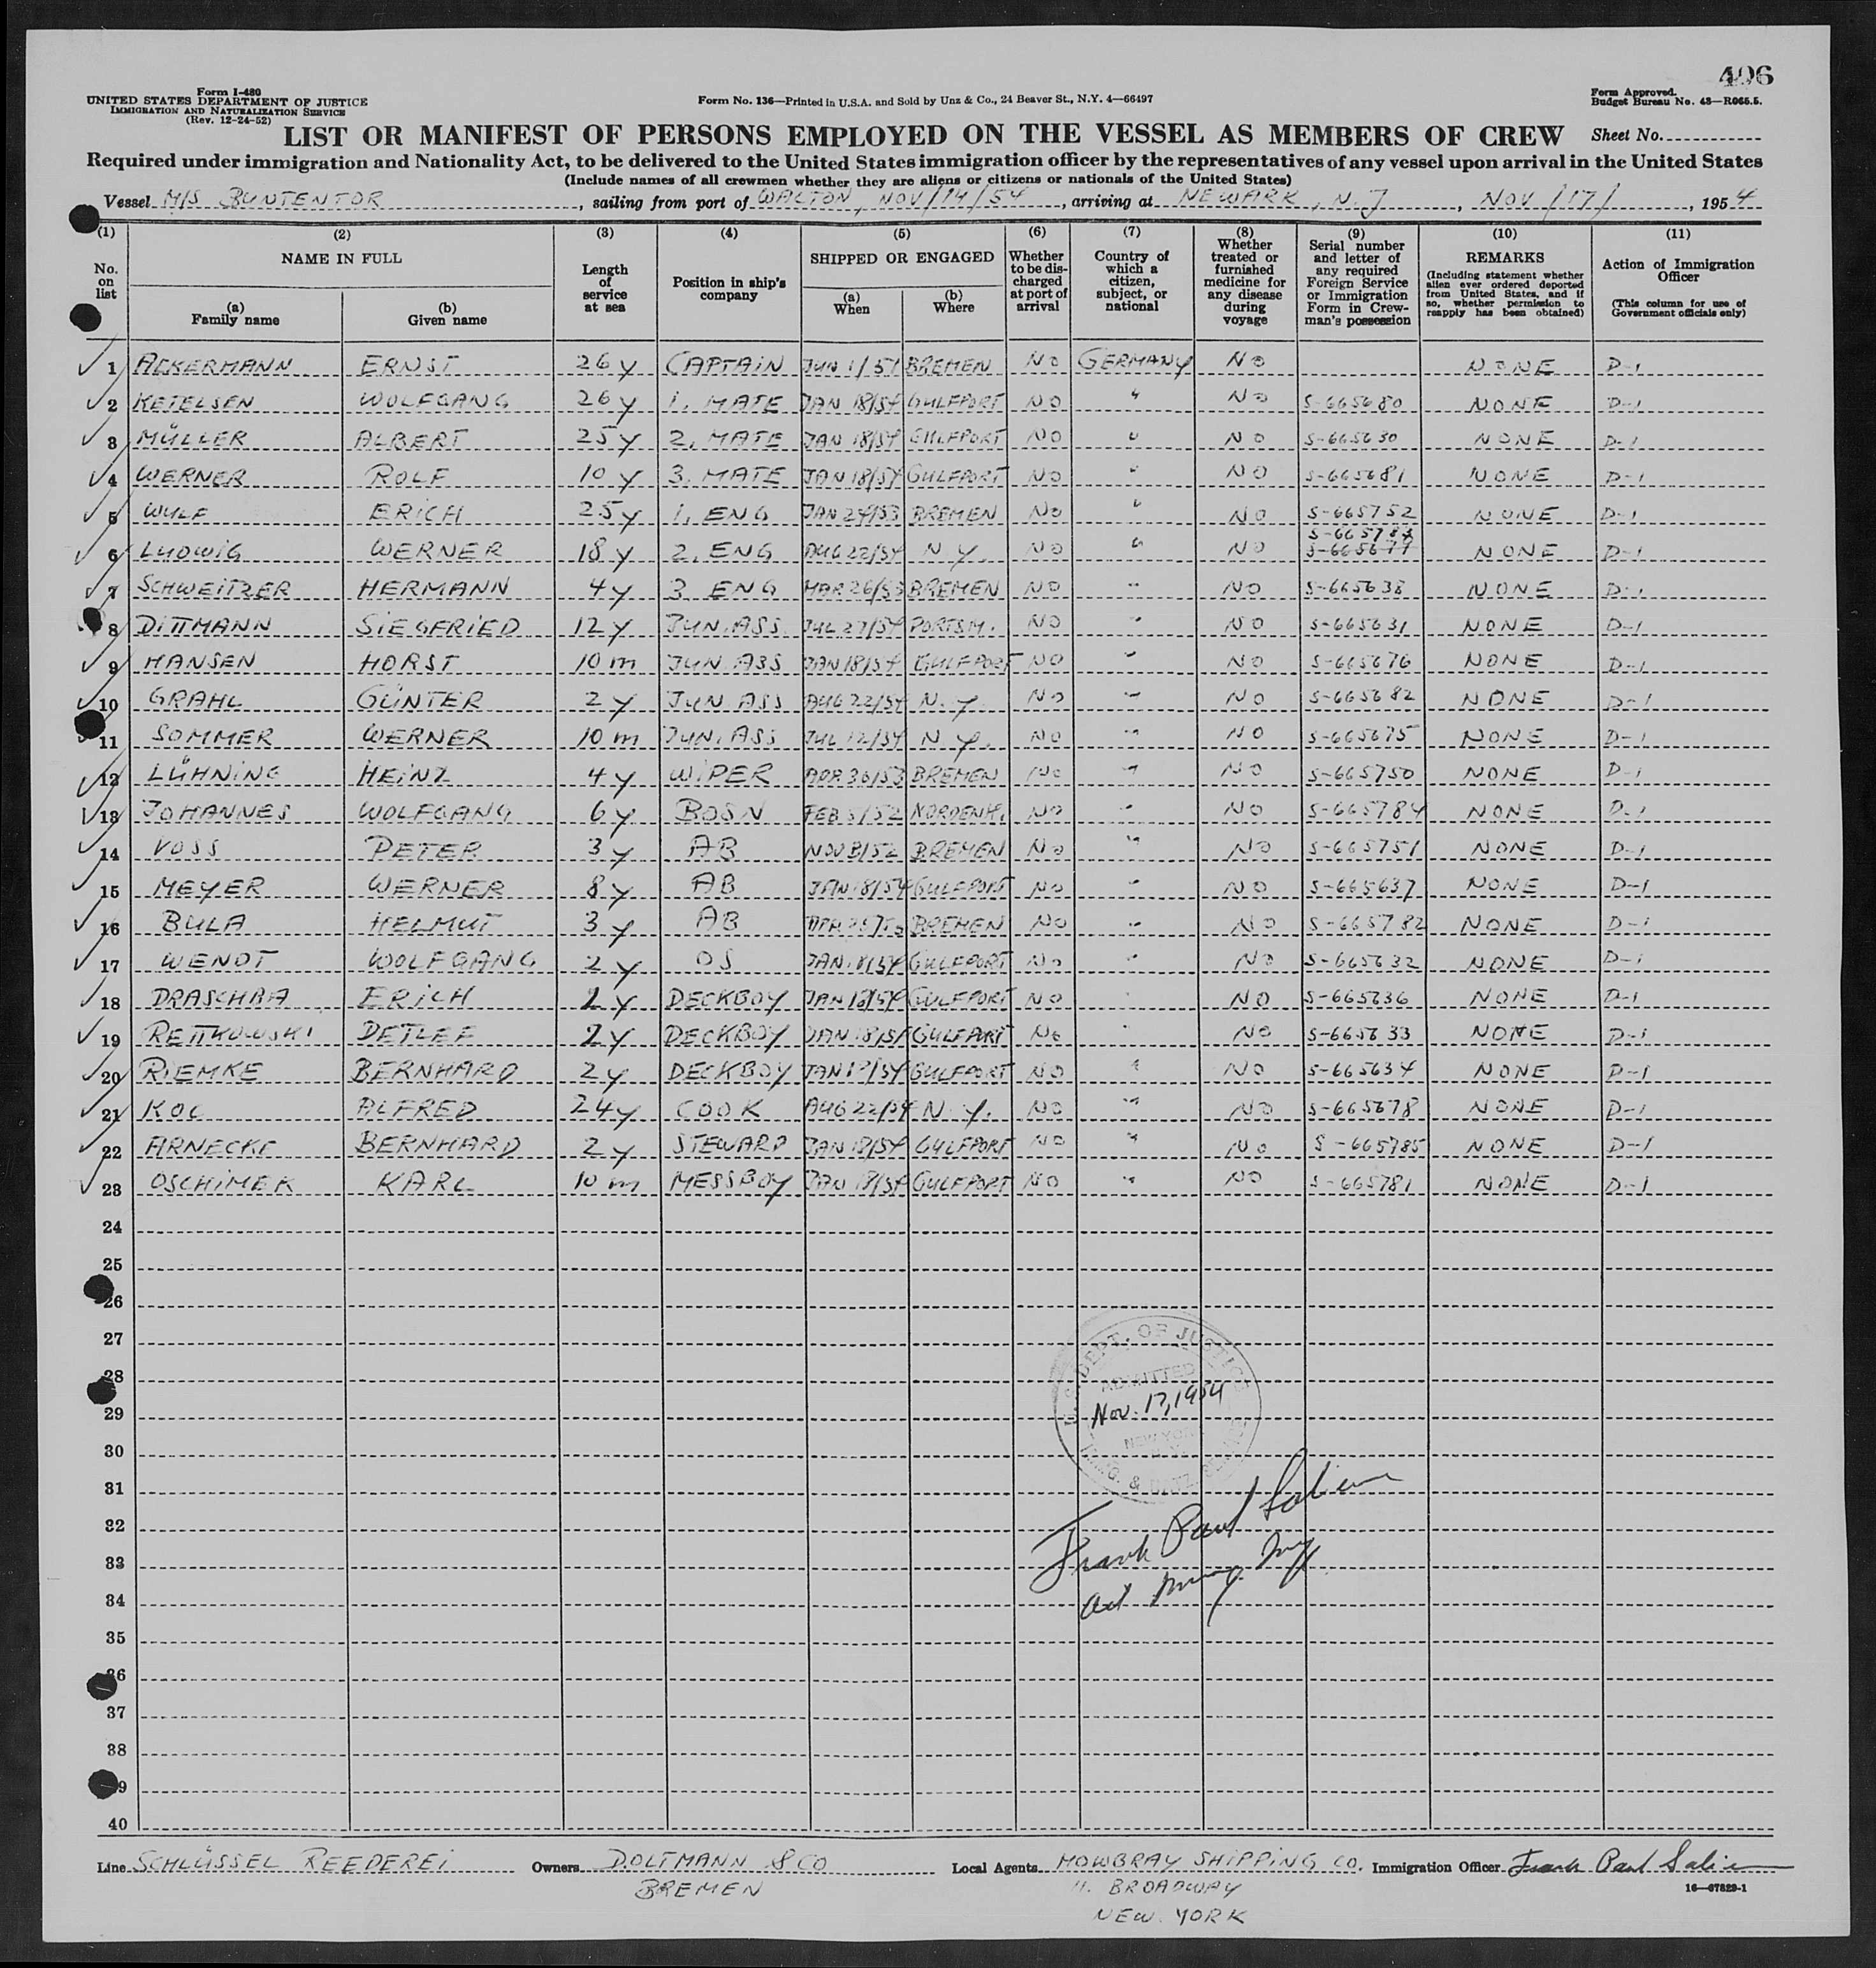 406
Form I-480
UNITED STATES DEPARTMENT OF JUSTICE
IMMIGRATION AND NATURALIZATION SERVICE
(Rev. 12-24-52)
Form No. 136—Printed in U.S.A. and Sold by Unz & Co., 24 Beaver St., N.Y. 4—66497
Form Approved.
Budget Bureau No. 43—R065.5.
LIST OR MANIFEST OF PERSONS EMPLOYED ON THE VESSEL AS MEMBERS OF CREW Sheet No.
Required under immigration and Nationality Act, to be delivered to the United States immigration officer by the representatives of any vessel upon arrival in the United States
(Include names of all crewmen whether they are aliens or citizens or nationals of the United States)
Vessel M/S BUNTENTOR, sailing from port of WALTON, NOV/14/54, arriving at NEWARK, N.J, NOV/17/, 1954
(1) No. on list
(2) NAME IN FULL
(a) Family name
(b) Given name
(3) Length of service at sea
(4) Position in ship's company
(5) SHIPPED OR ENGAGED
(a) When
(b) Where
(6) Whether to be discharged at port of arrival
(7) Country of which a citizen, subject, or national
(8) Whether treated or furnished medicine for any disease during voyage
(9) Serial number and letter of any required Foreign Service or Immigration Form in Crewman's possession
(10) REMARKS (Including statement whether alien ever ordered deported from United States, and if so, whether permission to reapply has been obtained)
(11) Action of Immigration Officer (This column for use of Government officials only)
1 ACKERMANN ERNST 26 y CAPTAIN JUN 1/51 BREMEN NO GERMANY NO NONE D-1
2 KETELSEN WOLFGANG 26 y 1. MATE JAN 18/54 GULFPORT NO " NO S-665680 NONE D-1
3 MÜLLER ALBERT 25 y 2. MATE JAN 18/54 GULFPORT NO " NO S-665630 NONE D-1
4 WERNER ROLF 10 y 3. MATE JAN 18/54 GULFPORT NO " NO S-665681 NONE D-1
5 WULF ERICH 25 y 1. ENG JAN 24/53 BREMEN NO " NO S-665752 NONE D-1
S-665787
6 LUDWIG WERNER 18 y 2. ENG AUG 22/54 N.Y. NO " NO S-665677 NONE D-1
7 SCHWEITZER HERMANN 4 y 3 ENG MAR 26/53 BREMEN NO " NO S-665638 NONE D-1
8 DITTMANN SIEGFRIED 12 y JUN. ASS. JUL 27/54 PORTSM. NO " NO S-665631 NONE D-1
9 HANSEN HORST 10 m JUN ASS JAN 18/54 GULFPORT NO " NO S-665676 NONE D-1
10 GRAHL GÜNTER 2 y JUN ASS AUG 22/54 N.Y. NO " NO S-665682 NONE D-1
11 SOMMER WERNER 10 m JUN. ASS JUL 12/54 N.Y. NO " NO S-665675 NONE D-1
12 LÜHNING HEINZ 4 y WIPER APR 30/53 BREMEN NO " NO S-665750 NONE D-1
13 JOHANNES WOLFGANG 6 y BOSN FEB 5/52 NORDENH. NO " NO S-665784 NONE D-1
14 VOSS PETER 3 y AB NOV 13/52 BREMEN NO " NO S-665751 NONE D-1
15 MEYER WERNER 8 y AB JAN 18/54 GULFPORT NO " NO S-665637 NONE D-1
16 BULA HELMUT 3 y AB BREMEN NO " NO S-665782 NONE D-1
17 WENDT WOLFGANG 2 y OS JAN 18/54 GULFPORT NO " NO S-665632 NONE D-1
18 DRASCHBA ERICH 2 y DECKBOY JAN 18/54 GULFPORT NO " NO S-665636 NONE D-1
19 RETTKOWSKI DETLEF 2 y DECKBOY JAN 18/54 GULFPORT NO " NO S-665633 NONE D-1
20 RIEMKE BERNHARD 2 y DECKBOY JAN 18/54 GULFPORT NO " NO S-665634 NONE D-1
21 KOC ALFRED 24 y COOK AUG 22/54 N.Y. NO " NO S-665678 NONE D-1
22 ARNECKE BERNHARD 2 y STEWARD JAN 18/54 GULFPORT NO " NO S-665785 NONE D-1
23 OSCHIMEK KARL 10 m MESSBOY JAN 18/54 GULFPORT NO " NO S-665781 NONE D-1
24
25
26
27
28
29
30
31
32
33
34
35
36
37
38
39
40
U.S. DEPT. OF JUSTICE
ADMITTED
Nov. 17, 1954
NEW YORK
IMMIG. & NATZ. SERVICE
Frank Paul Salie
Line SCHLÜSSEL REEDEREI Owners DOLTMANN & CO Local Agents MOWBRAY SHIPPING CO. Immigration Officer Frank Paul Salie
BREMEN
11. BROADWAY
NEW YORK
16—67829-1